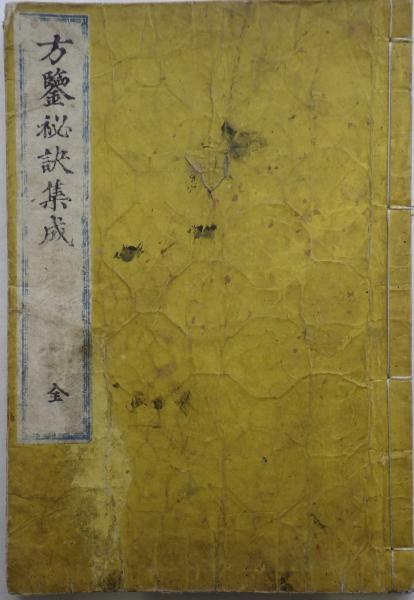 方鑒秘訣集成
全